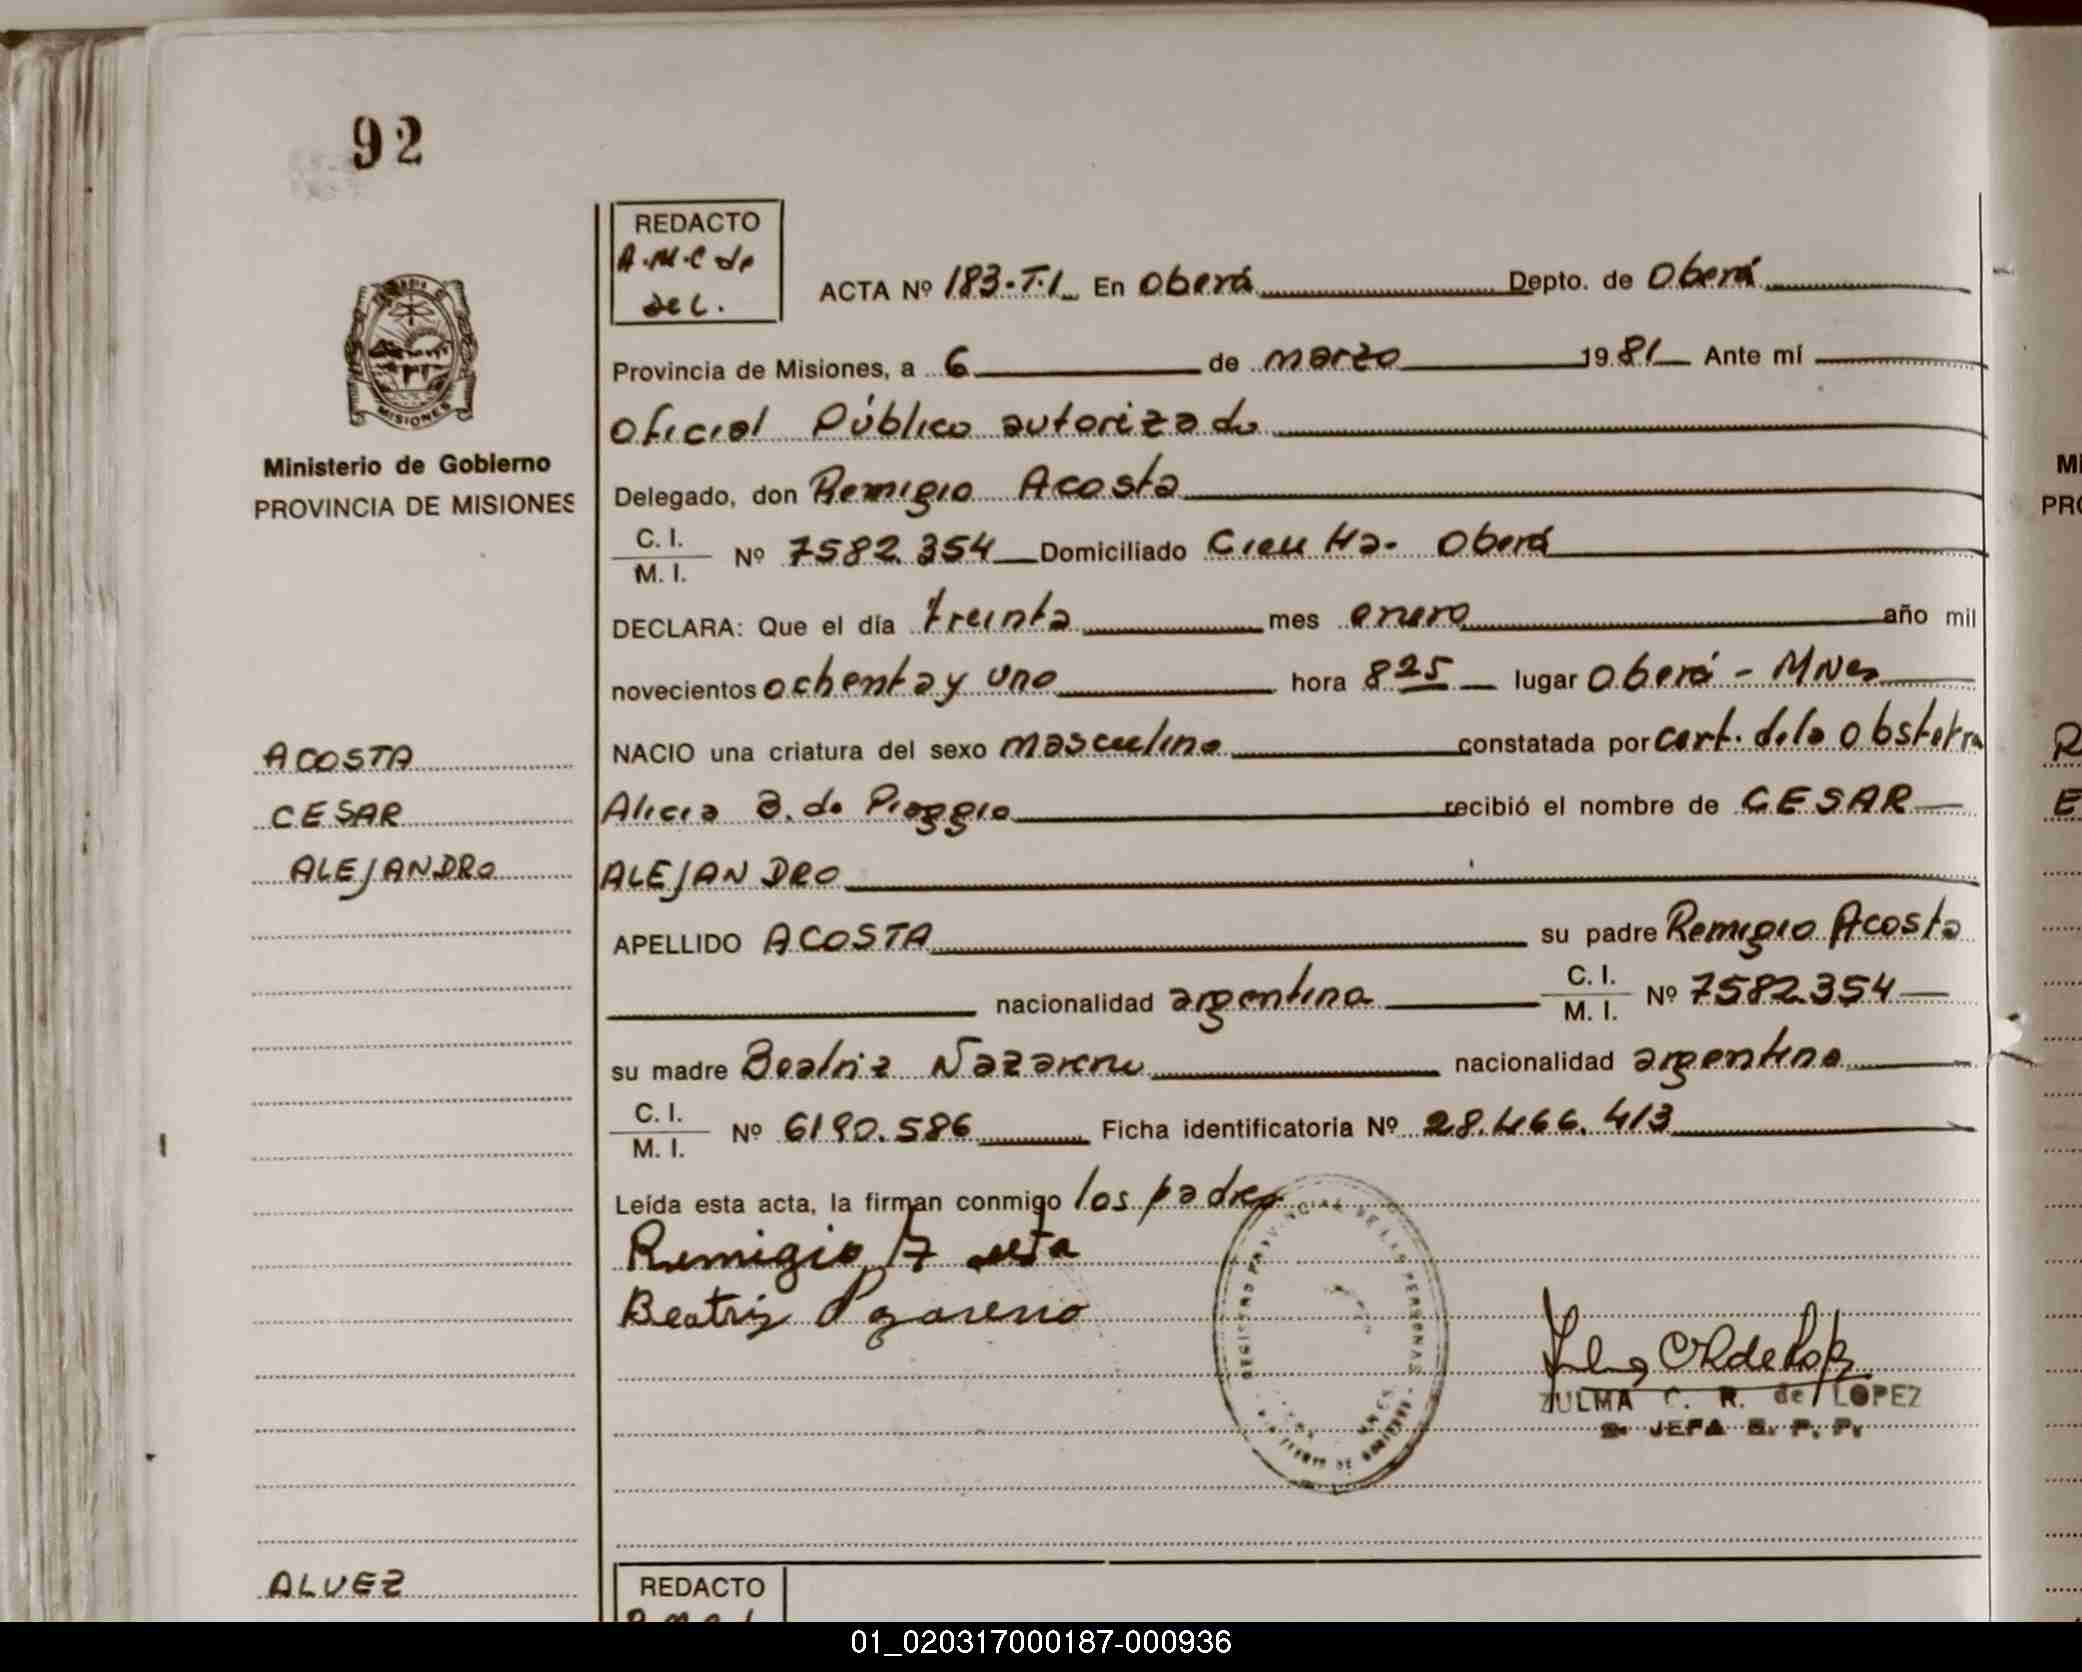 92
REDACTO
A.M.C de
de L.
ACTA Nº 183-T.I En Oberá Depto. de Oberá
Provincia de Misiones, a 6 de marzo 1981 Ante mí
Oficial Público autorizado
MISIONES
Ministerio de Gobierno
PROVINCIA DE MISIONES
Delegado, don Remigio Acosta
C. I.
M. I. Nº 7582.354 Domiciliado Cien Ha- Oberá
DECLARA: Que el día treinta mes enero año mil
novecientos ochenta y uno hora 8 25 lugar Oberá - MNes
ACOSTA
CESAR
ALEJANDRO
NACIO una criatura del sexo masculino constatada por cert. de la Obstetra
Alicia B. de Pioggio recibió el nombre de CESAR
ALEJANDRO
APELLIDO ACOSTA su padre Remigio Acosta
nacionalidad argentina C. I.
M. I. Nº 7582.354
su madre Beatriz Nazareno nacionalidad argentina
C. I.
M. I. Nº 6190.586 Ficha identificatoria Nº 28.466.413
Leída esta acta, la firman conmigo los padres
Remigio Acosta
Beatriz Nazareno
REGISTRO PROVINCIAL DE LAS PERSONAS
ZULMA C. R. de LOPEZ
JEFA
ALVEZ
REDACTO
Mi
PRO
R
E
01_020317000187-000936